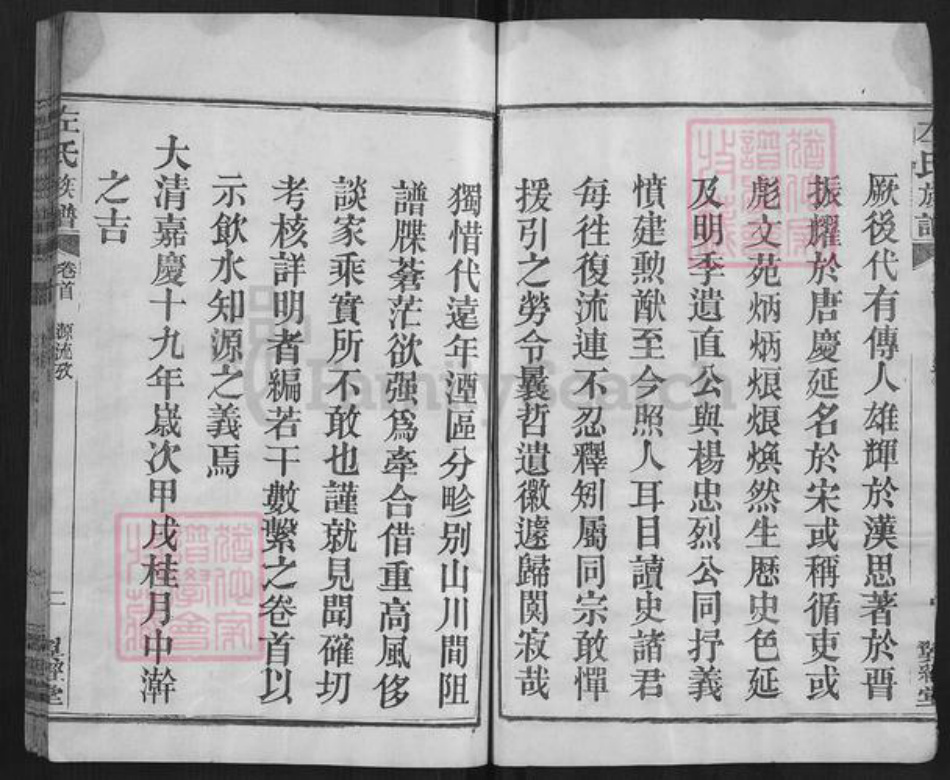 厥後代有傳人雄輝於漢思著於晉
振耀於唐慶延名於宋或稱循吏或
彪文苑炳炳烺烺煥然生歷史色延
及明季遺直公與楊忠烈公同抒義
憤建勲猷至今照人耳目讀史諸君
每徃復流連不忍釋矧屬同宗敢憚
援引之勞令曩哲遺徽遽歸閴寂哉
獨惜代遠年湮區分畛别山川間阻
譜牒蒼茫欲强爲牽合借重高風侈
談家乘實所不敢也謹就見聞確切
考核詳明者編若干數繫之卷首以
示飲水知源之義焉
大清嘉慶十九年嵗次甲戌桂月中澣
之吉
左氏族譜
卷首 源流攷
二
左氏族譜
FamilySearch